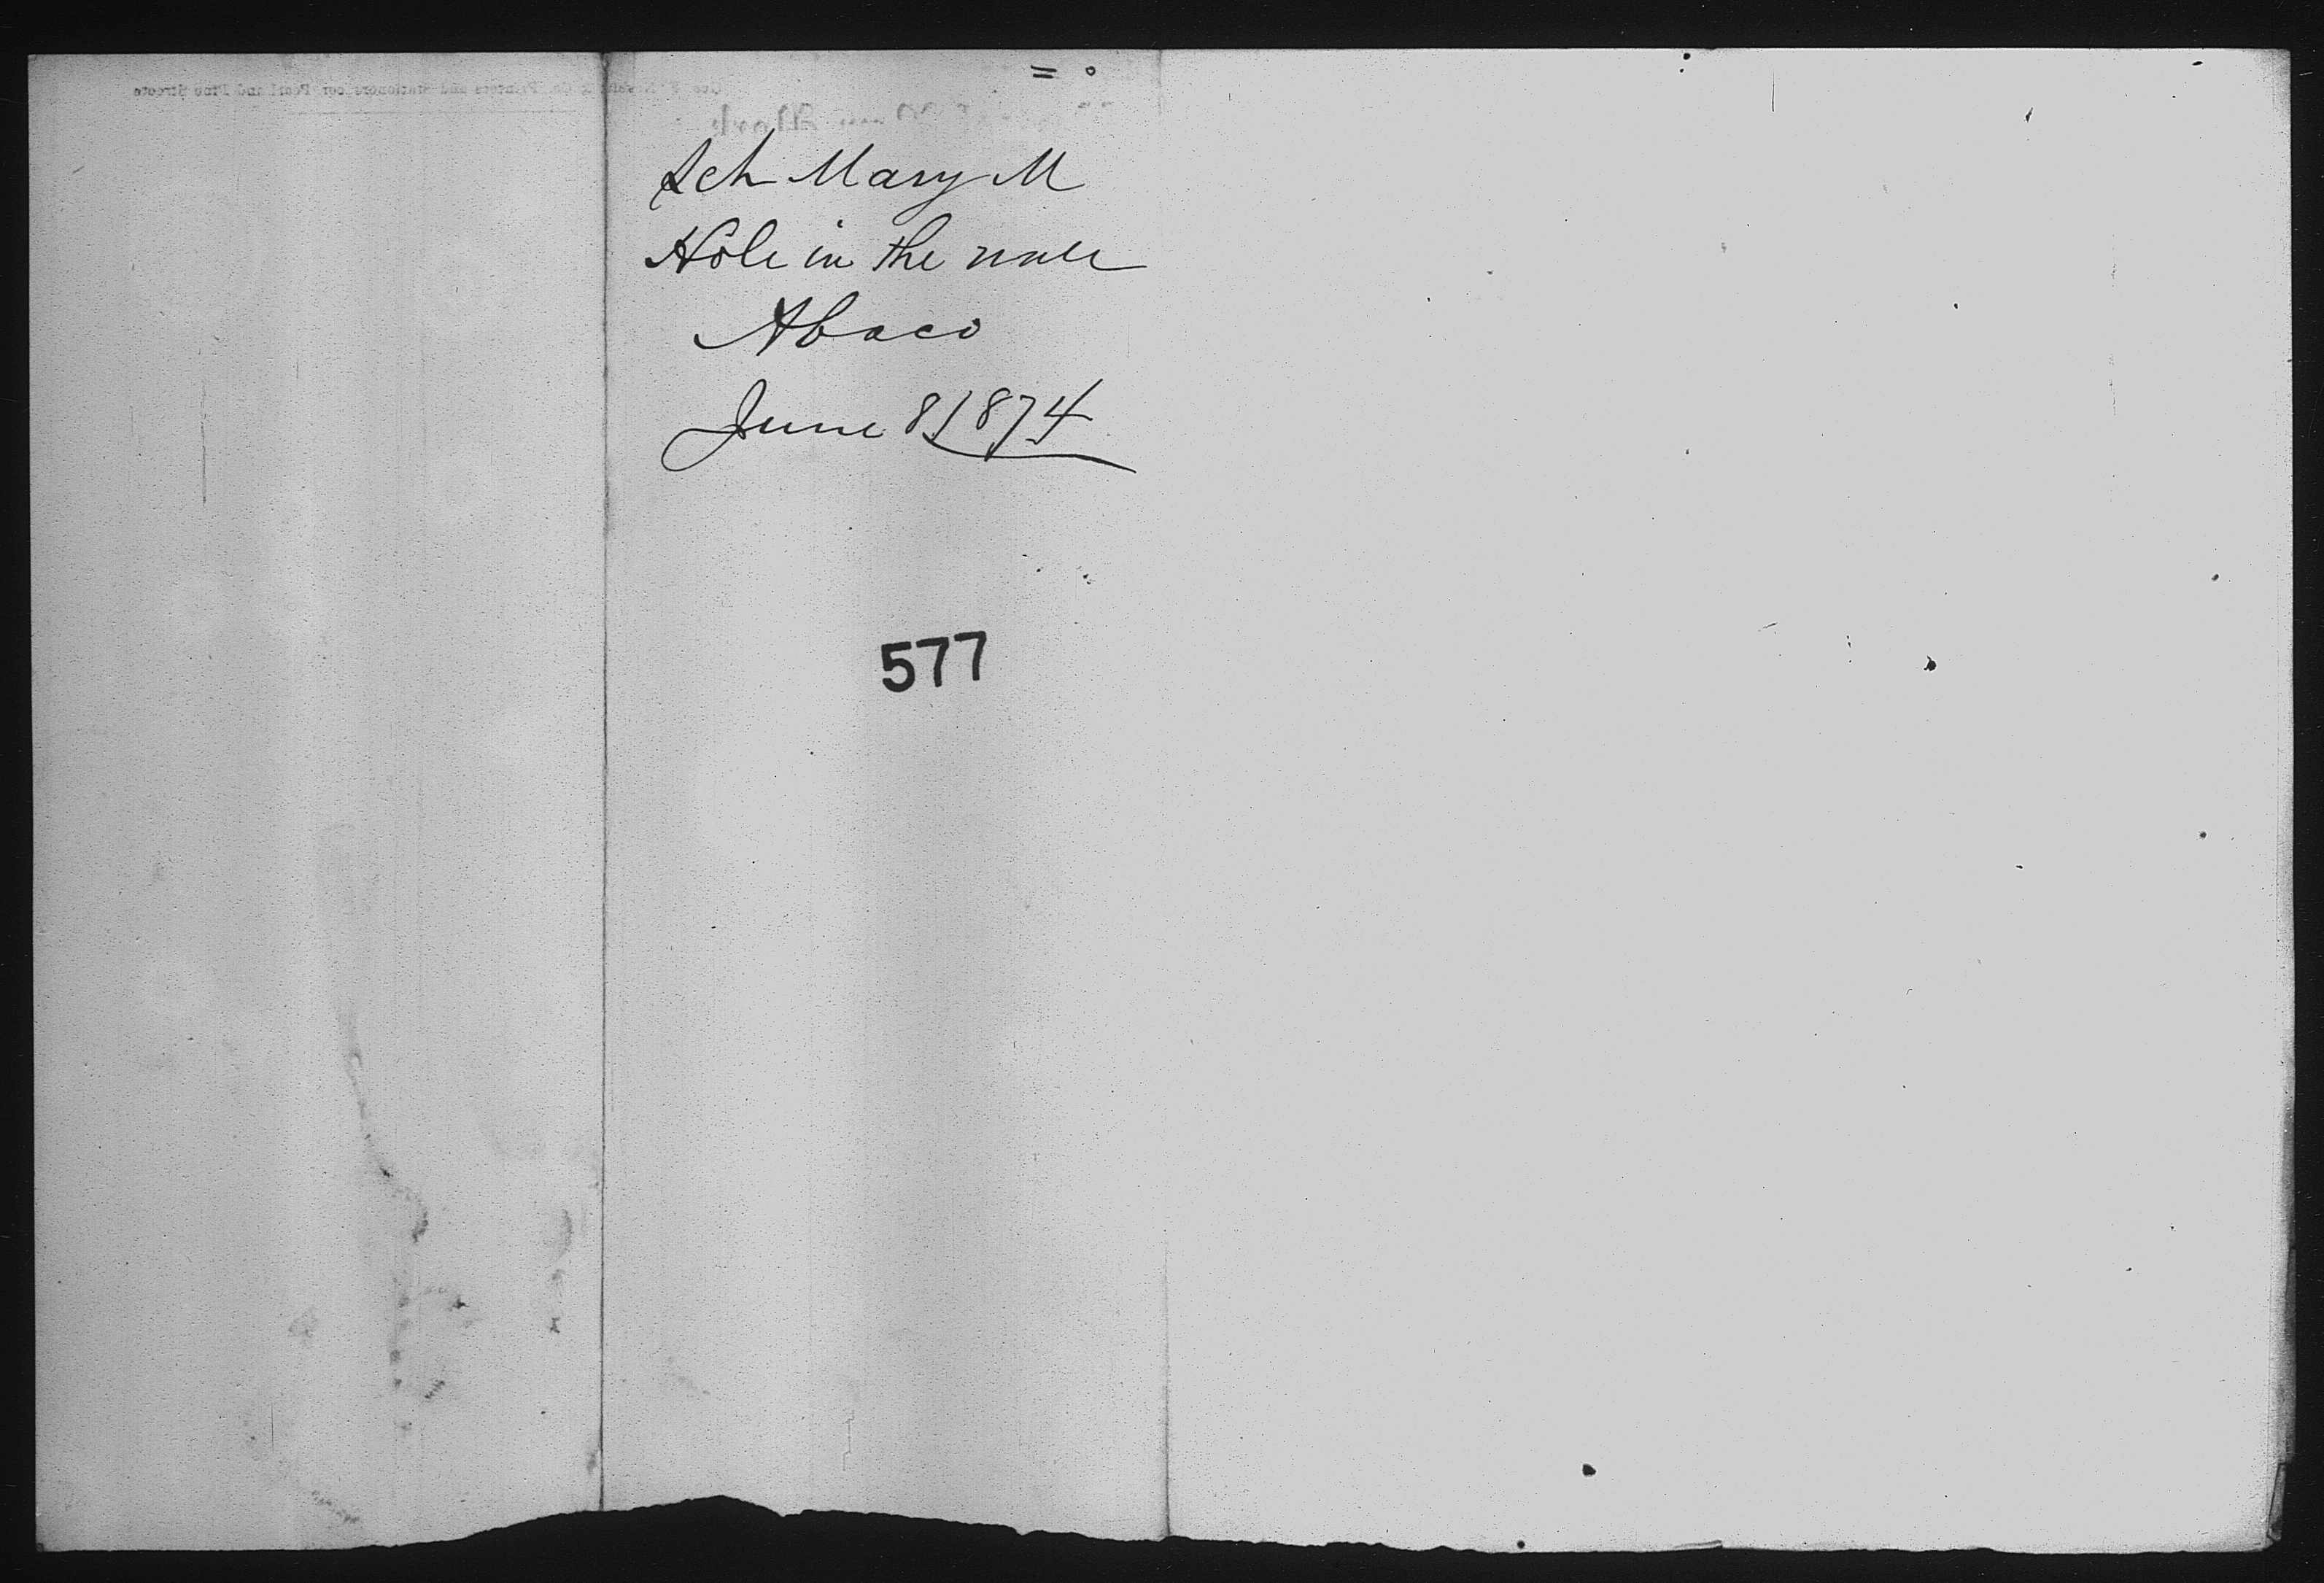 Sch Mary M
Hole in the wall
Abaco
June 8/1874
577